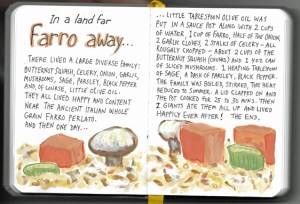 In a land far
Farro away...
THERE LIVED A LARGE DIVERSE FAMILY:
BUTTERNUT SQUASH, CELERY, ONION, GARLIC,
MUSHROOMS, SAGE, PARSLEY, BLACK PEPPER
AND, OF COURSE, LITTLE OLIVE OIL.
THEY ALL LIVED HAPPY AND CONTENT
NEAR THE ANCIENT ITALIAN WHOLE
GRAIN FARRO PERLATO.
AND THEN ONE DAY...
... LITTLE TABLESPOON OLIVE OIL WAS
PUT IN A SAUCE POT ALONG WITH 2 CUPS
OF WATER, 1 CUP OF FARRO, HALF OF THE ONION,
2 GARLIC CLOVES, 2 STALKS OF CELERY - ALL
ROUGHLY CHOPPED - ABOUT 2 CUPS OF THE
BUTTERNUT SQUASH (CUBED) AND 1 8 OZ CAN
OF SLICED MUSHROOMS. 1 HEAPING TABLESPOON
OF SAGE, A DASH OF PARSLEY, BLACK PEPPER.
THE FAMILY WAS BOILED, STIRRED, THE HEAT
REDUCED TO SIMMER. A LID CLAPPED ON AND
THE POT COOKED FOR 25 TO 30 MINS. THEN
2 GIANTS ATE THEM ALL UP AND LIVED
HAPPILY EVER AFTER! THE END.